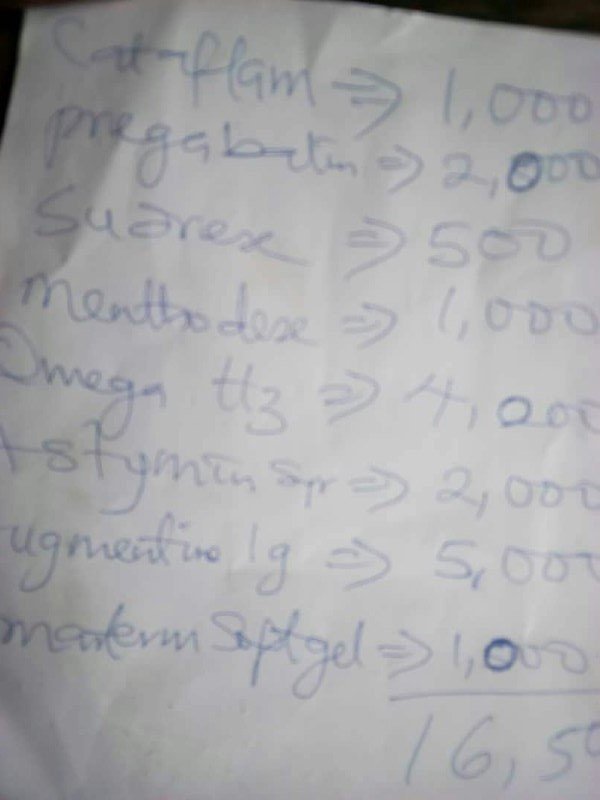 Cataflam ⇒ 1,000
pregabalin ⇒ 2,000
Surex ⇒ 500
menthodex ⇒ 1,000
Omega H3 ⇒ 4,000
Astymin Syr ⇒ 2,000
ugmentin 1g ⇒ 5,000
Softgel ⇒ 1,000
16,50